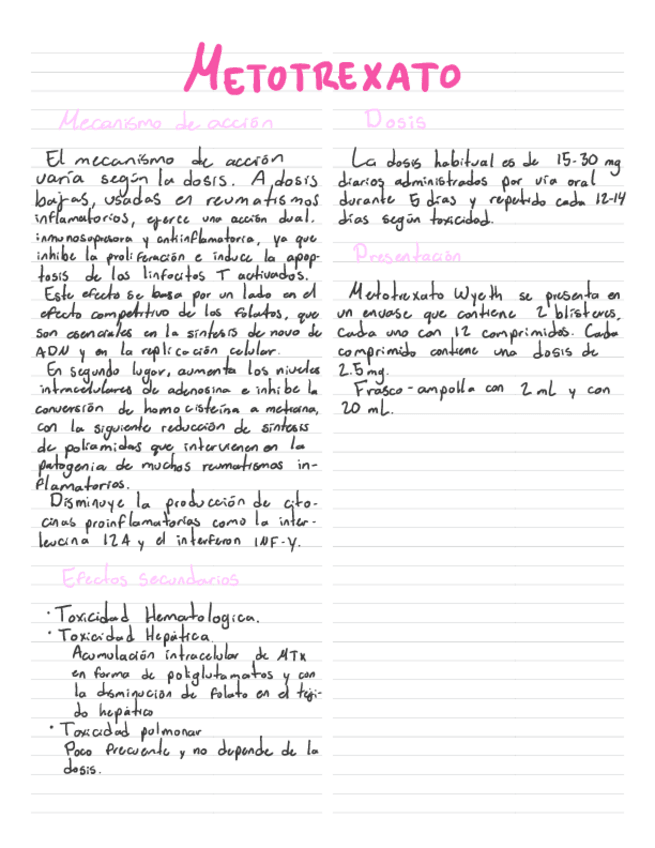 METOTREXATO
Mecanismo de acción
El mecanismo de acción
varía según la dosis. A dosis
bajas, usadas en reumatismos
inflamatorios, ejerce una acción dual.
inmunosupresora y antiinflamatoria, ya que
inhibe la proliferación e induce la apop-
tosis de los linfocitos T activados.
Este efecto se basa por un lado en el
efecto competitivo de los folatos, que
son esenciales en la síntesis de novo de
ADN y en la replicación celular.
En segundo lugar, aumenta los niveles
intracelulares de adenosina e inhibe la
conversión de homocisteína a
con la siguiente reducción de síntesis
de poliamidas que intervienen en la
patogenia de muchos reumatismos in-
flamatorios.
Disminuye la producción de cito-
cinas proinflamatorias como la inter-
leucina 12A y el interferon INF-γ.
Efectos secundarios
· Toxicidad Hematologica.
· Toxicidad Hepática
Acumulación intracelular de MTX
en forma de poliglutamatos y con
la disminución de folato en el teji-
do hepático
· Toxicidad pulmonar
Poco frecuente y no depende de la
dosis.
Dosis
La dosis habitual es de 15-30 mg
diarios administrados por vía oral
durante 5 días y repetido cada 12-14
días según toxicidad.
Presentación
Metotrexato Wyeth se presenta en
un envase que contiene 2 blísteres,
cada uno con 12 comprimidos. Cada
comprimido contiene una dosis de
2.5 mg.
Frasco-ampolla con 2 mL y con
20 mL.